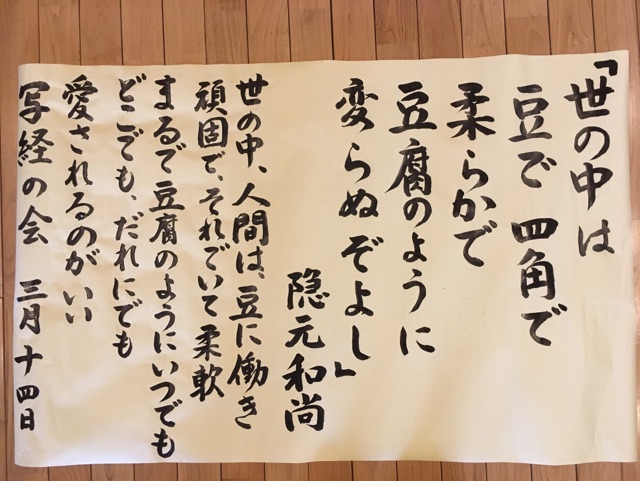 「世の中は
豆で 四角で
柔らかで
豆腐のように
変らぬぞよし」
隠元和尚
世の中、人間は、豆に働き
頑固で、それでいて柔軟
まるで豆腐のようにいつでも
どこでも、だれにでも
愛されるのがいい
写経の会 三月十四日